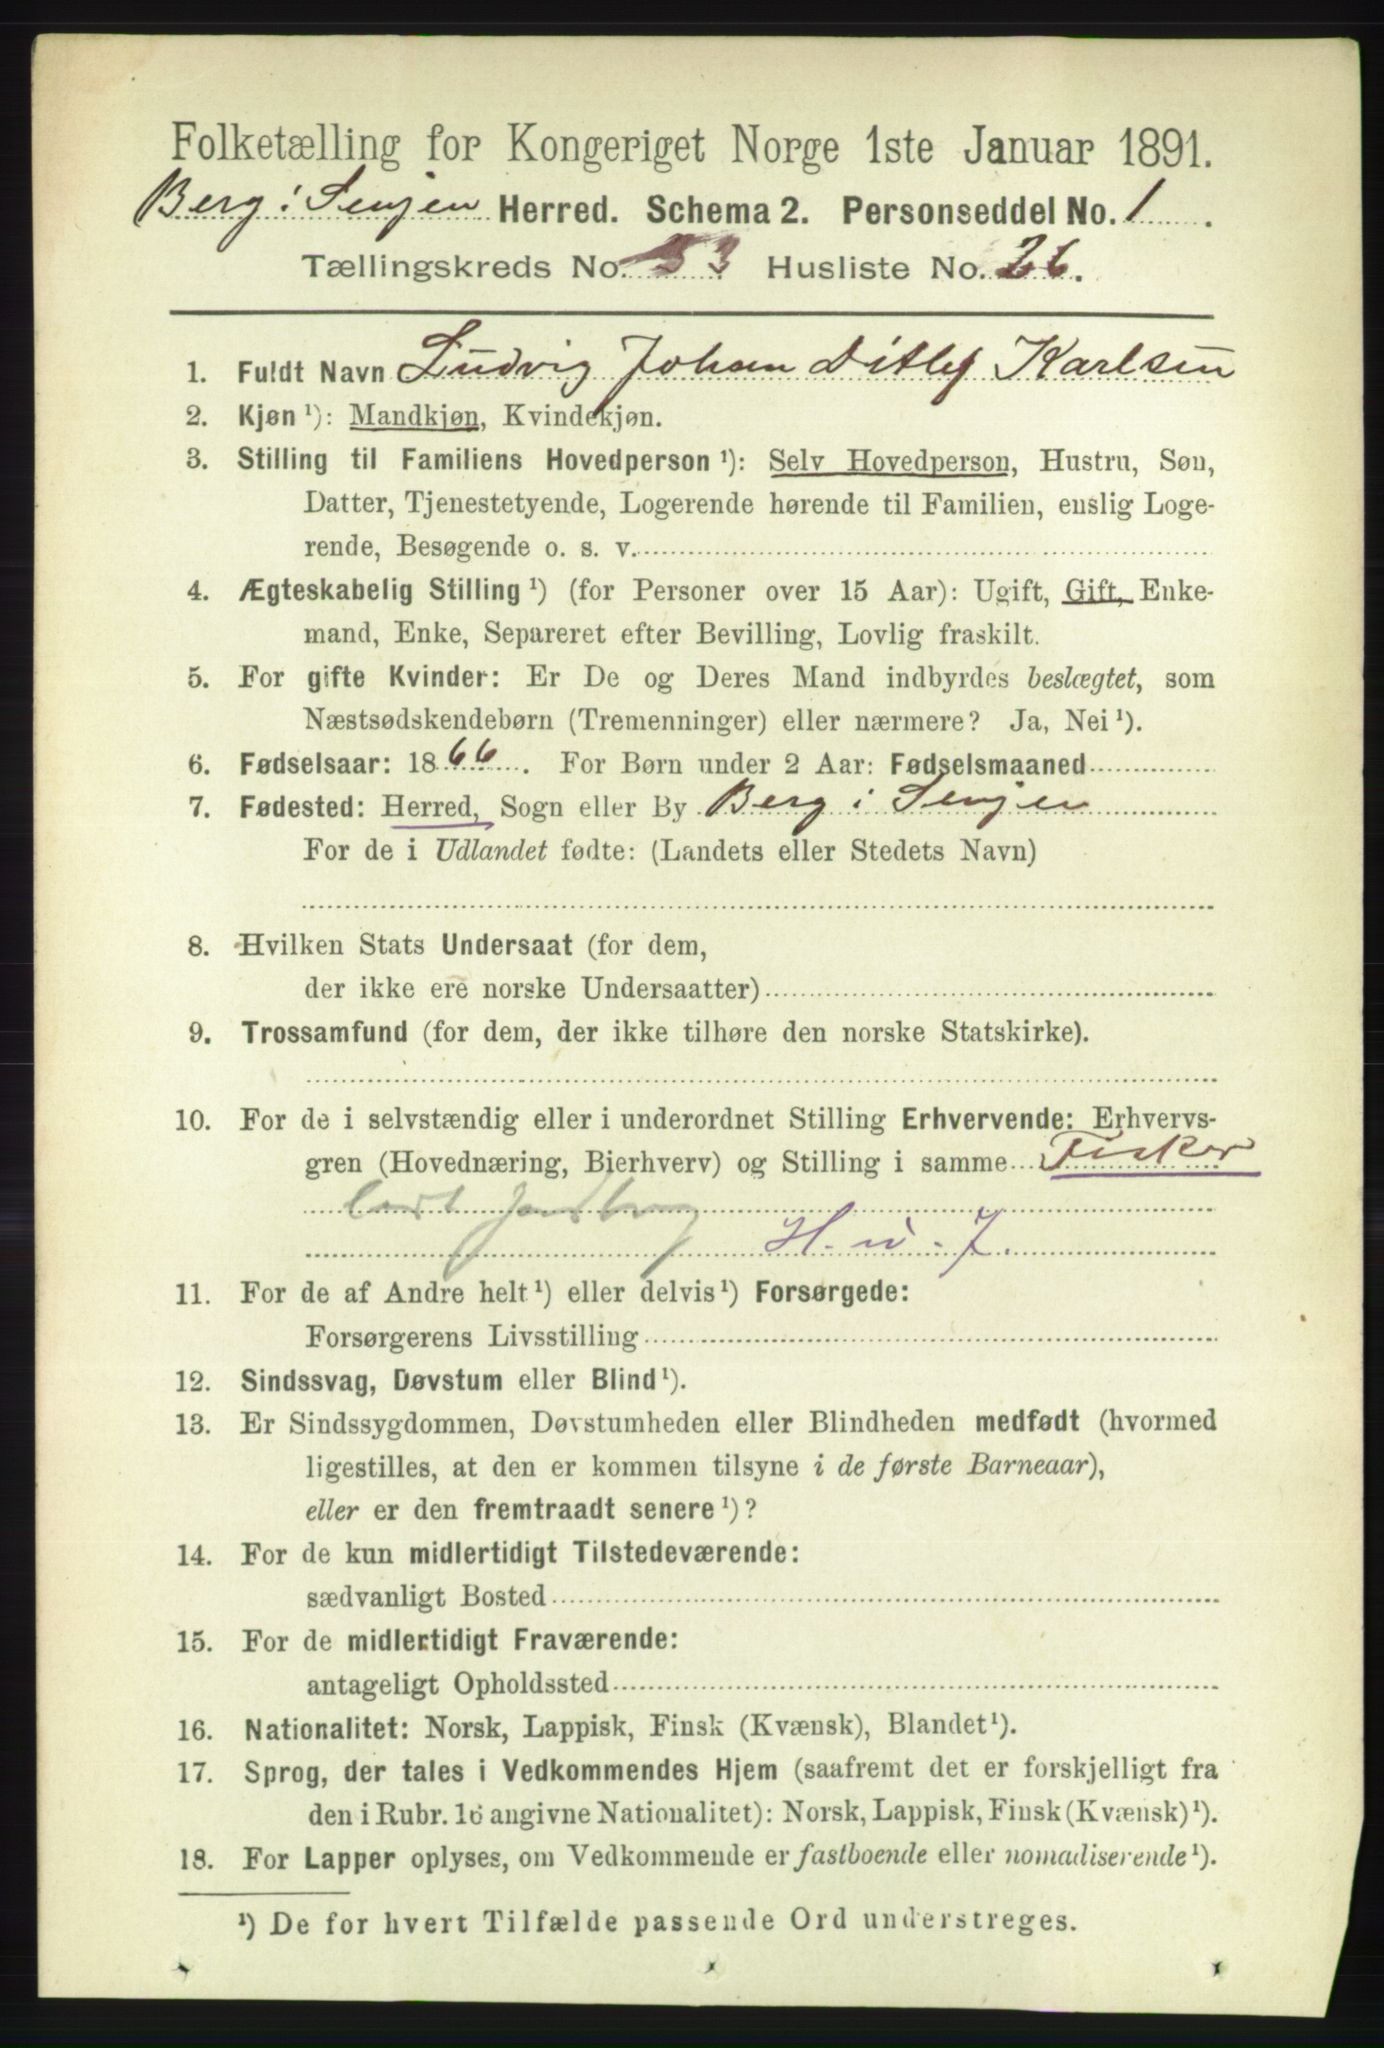 Folketælling for Kongeriget Norge 1ste Januar 1891.
Berg i Senjen Herred. Schema 2. Personseddel No. 1.
Tællingskreds No. 3. Husliste No. 26.
1. Fuldt Navn Ludvig Johan Ditlef Karlsen
2. Kjøn ¹): Mandkjøn, Kvindekjøn.
3. Stilling til Familiens Hovedperson ¹): Selv Hovedperson, Hustru, Søn,
Datter, Tjenestetyende, Logerende hørende til Familien, enslig Loge-
rende, Besøgende o. s. v.
4. Ægteskabelig Stilling ¹) (for Personer over 15 Aar): Ugift, Gift, Enke-
mand, Enke, Separeret efter Bevilling, Lovlig fraskilt.
5. For gifte Kvinder: Er De og Deres Mand indbyrdes beslægtet, som
Næstsødskendebørn (Tremenninger) eller nærmere? Ja, Nei ¹).
6. Fødselsaar: 1866. For Børn under 2 Aar: Fødselsmaaned
7. Fødested: Herred, Sogn eller By Berg i Senjen
For de i Udlandet fødte: (Landets eller Stedets Navn)
8. Hvilken Stats Undersaat (for dem,
der ikke ere norske Undersaatter)
9. Trossamfund (for dem, der ikke tilhøre den norske Statskirke).
10. For de i selvstændig eller i underordnet Stilling Erhvervende: Erhvervs-
gren (Hovednæring, Bierhverv) og Stilling i samme Fisker
H. u. J.
11. For de af Andre helt ¹) eller delvis ¹) Forsørgede:
Forsørgerens Livsstilling
12. Sindssvag, Døvstum eller Blind ¹).
13. Er Sindssygdommen, Døvstumheden eller Blindheden medfødt (hvormed
ligestilles, at den er kommen tilsyne i de første Barneaar),
eller er den fremtraadt senere ¹)?
14. For de kun midlertidigt Tilstedeværende:
sædvanligt Bosted
15. For de midlertidigt Fraværende:
antageligt Opholdssted
16. Nationalitet: Norsk, Lappisk, Finsk (Kvænsk), Blandet ¹).
17. Sprog, der tales i Vedkommendes Hjem (saafremt det er forskjelligt fra
den i Rubr. 16 angivne Nationalitet): Norsk, Lappisk, Finsk (Kvænsk) ¹).
18. For Lapper oplyses, om Vedkommende er fastboende eller nomadiserende ¹).
¹) De for hvert Tilfælde passende Ord understreges.